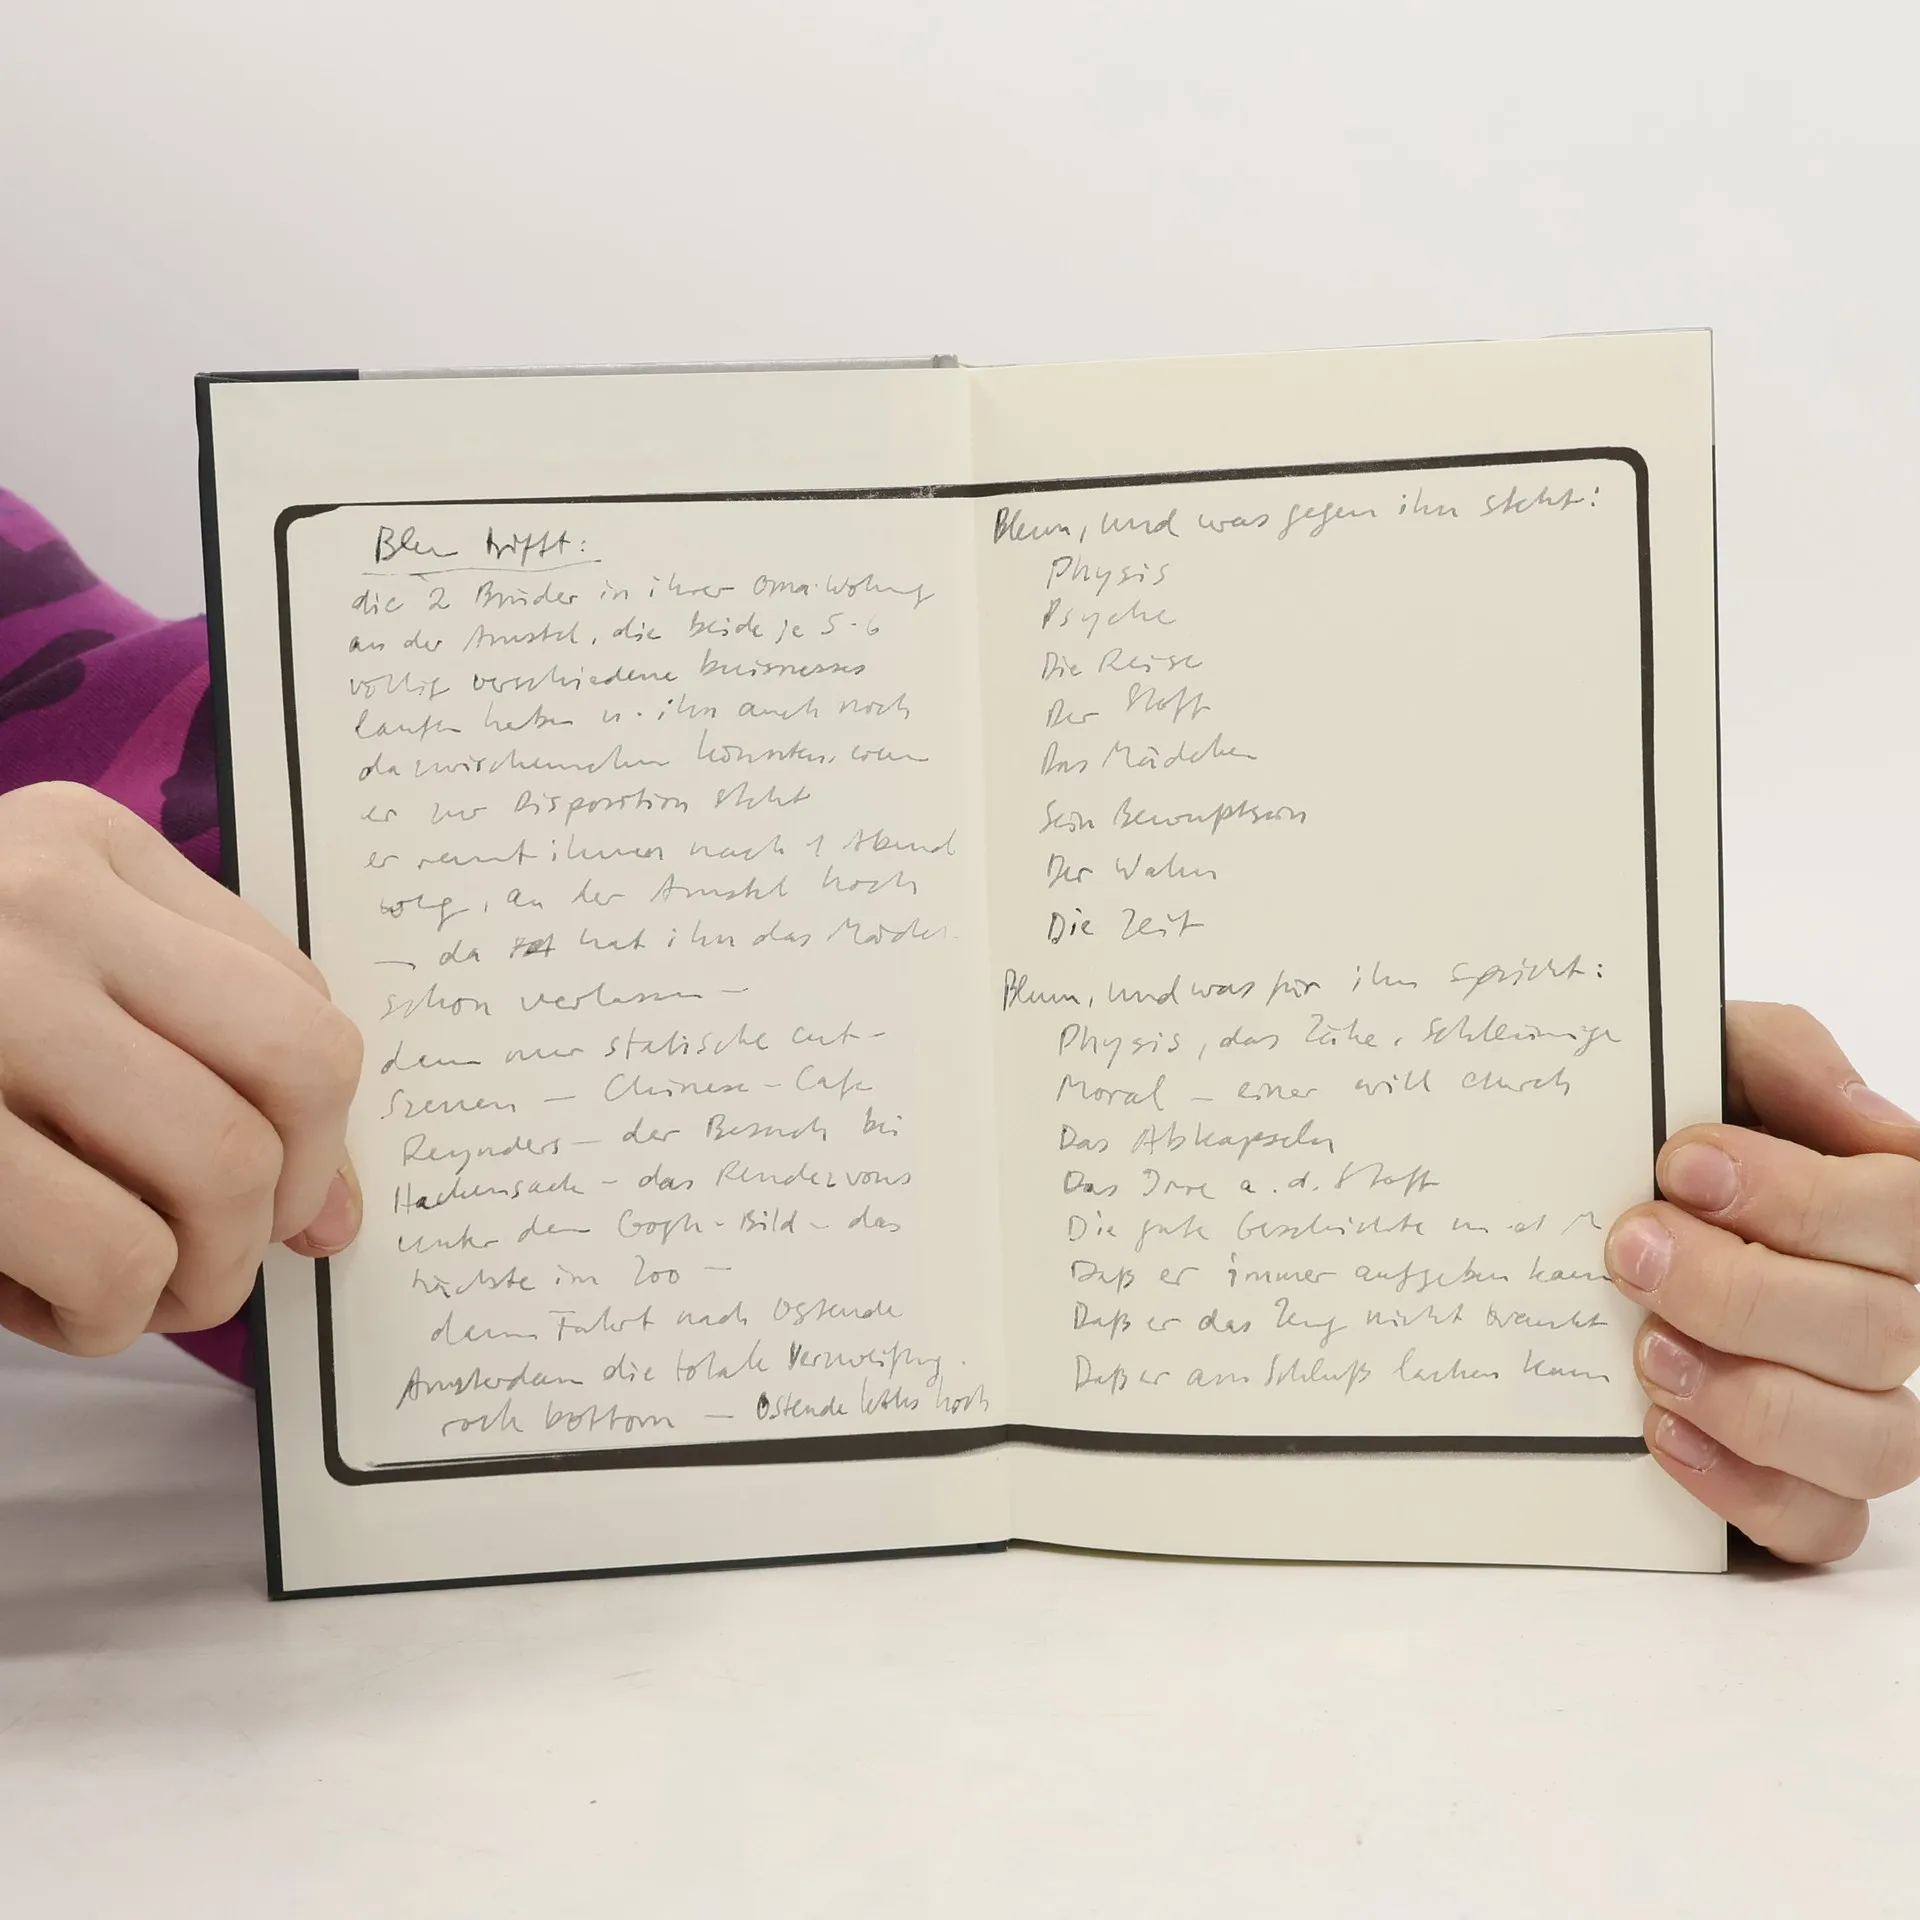 Blum trifft:
die 2 Brüder in ihrer Oma-Wohnung
an der Amstel, die beide je 5-6
völlig verschiedene buisnesses
laufen haben u. ihn auch noch
dazwischen könnten, wenn
er zur Disposition steht
er rennt ihnen nach 1 Abend
weg, an der Amstel hoch
— da hat ihn das Mädchen
schon verlassen —
dann nur statische cut-
Szenen — Chinese-Cafe
Reynders — der Besuch bei
Hackensack — das Rendezvous
unter dem Gogh-Bild — das
nächste im Zoo —
dann Fahrt nach Ostende
Amsterdam die totale Verzweiflung.
rock bottom — Ostende letztes hoch
Blum, und was gegen ihn steht:
Physis
Psyche
Die Reise
Der Stoff
Das Mädchen
Sein Bewußtsein
Der Wahn
Die Zeit
Blum, und was für ihn spricht:
Physis, das Zähe, Schleimige
Moral — einer will durch
Das Abkapseln
Das Irre a. d. Stoff
Die gute Geschichte m. d. M
Daß er immer aufgeben kann
Daß er das Zeug nicht braucht
Daß er am Schluß lachen kann